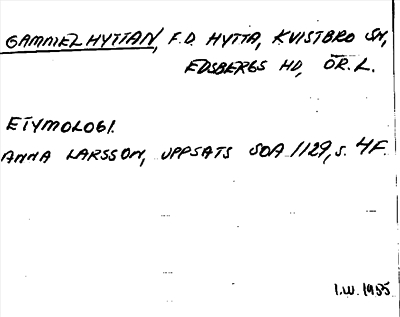 GAMMELHYTTAN, F.D. HYTTA, KVISTBRO SN,
EDSBERGS HD, ÖR.L.
ETYMOLOGI.
ANNA LARSSON, UPPSATS SOA 1129, s. 4F.
I.W. 1985